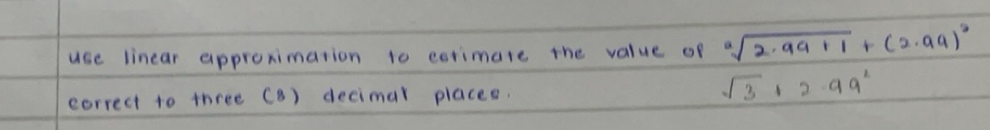 use linear approximation to estimate the value of ²√2.99+1 + (2.99)²
correct to three (3) decimal places. √3 + 2.99²